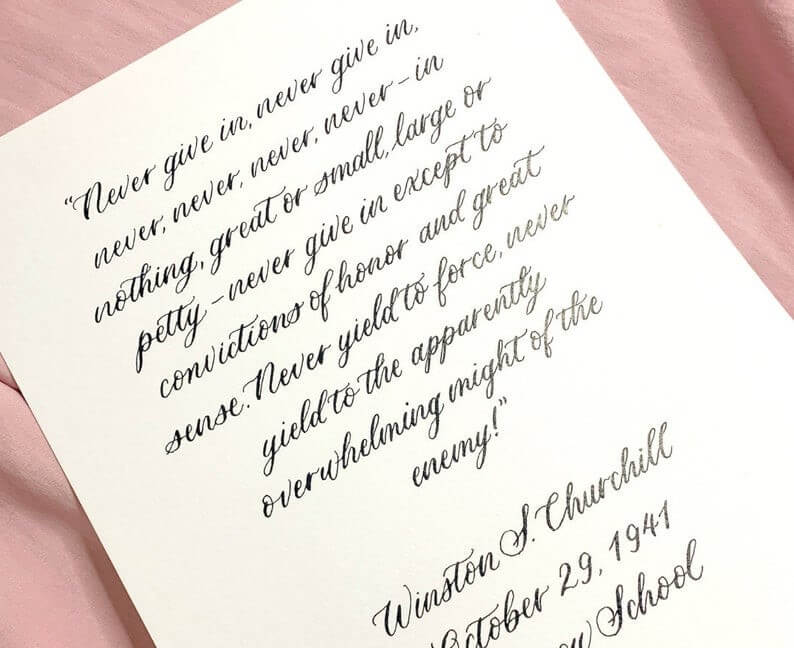 “Never give in, never give in,
never, never, never, never – in
nothing, great or small, large or
petty – never give in except to
convictions of honor and great
sense. Never yield to force, never
yield to the apparently
overwhelming might of the
enemy!”
Winston S. Churchill
October 29, 1941
School